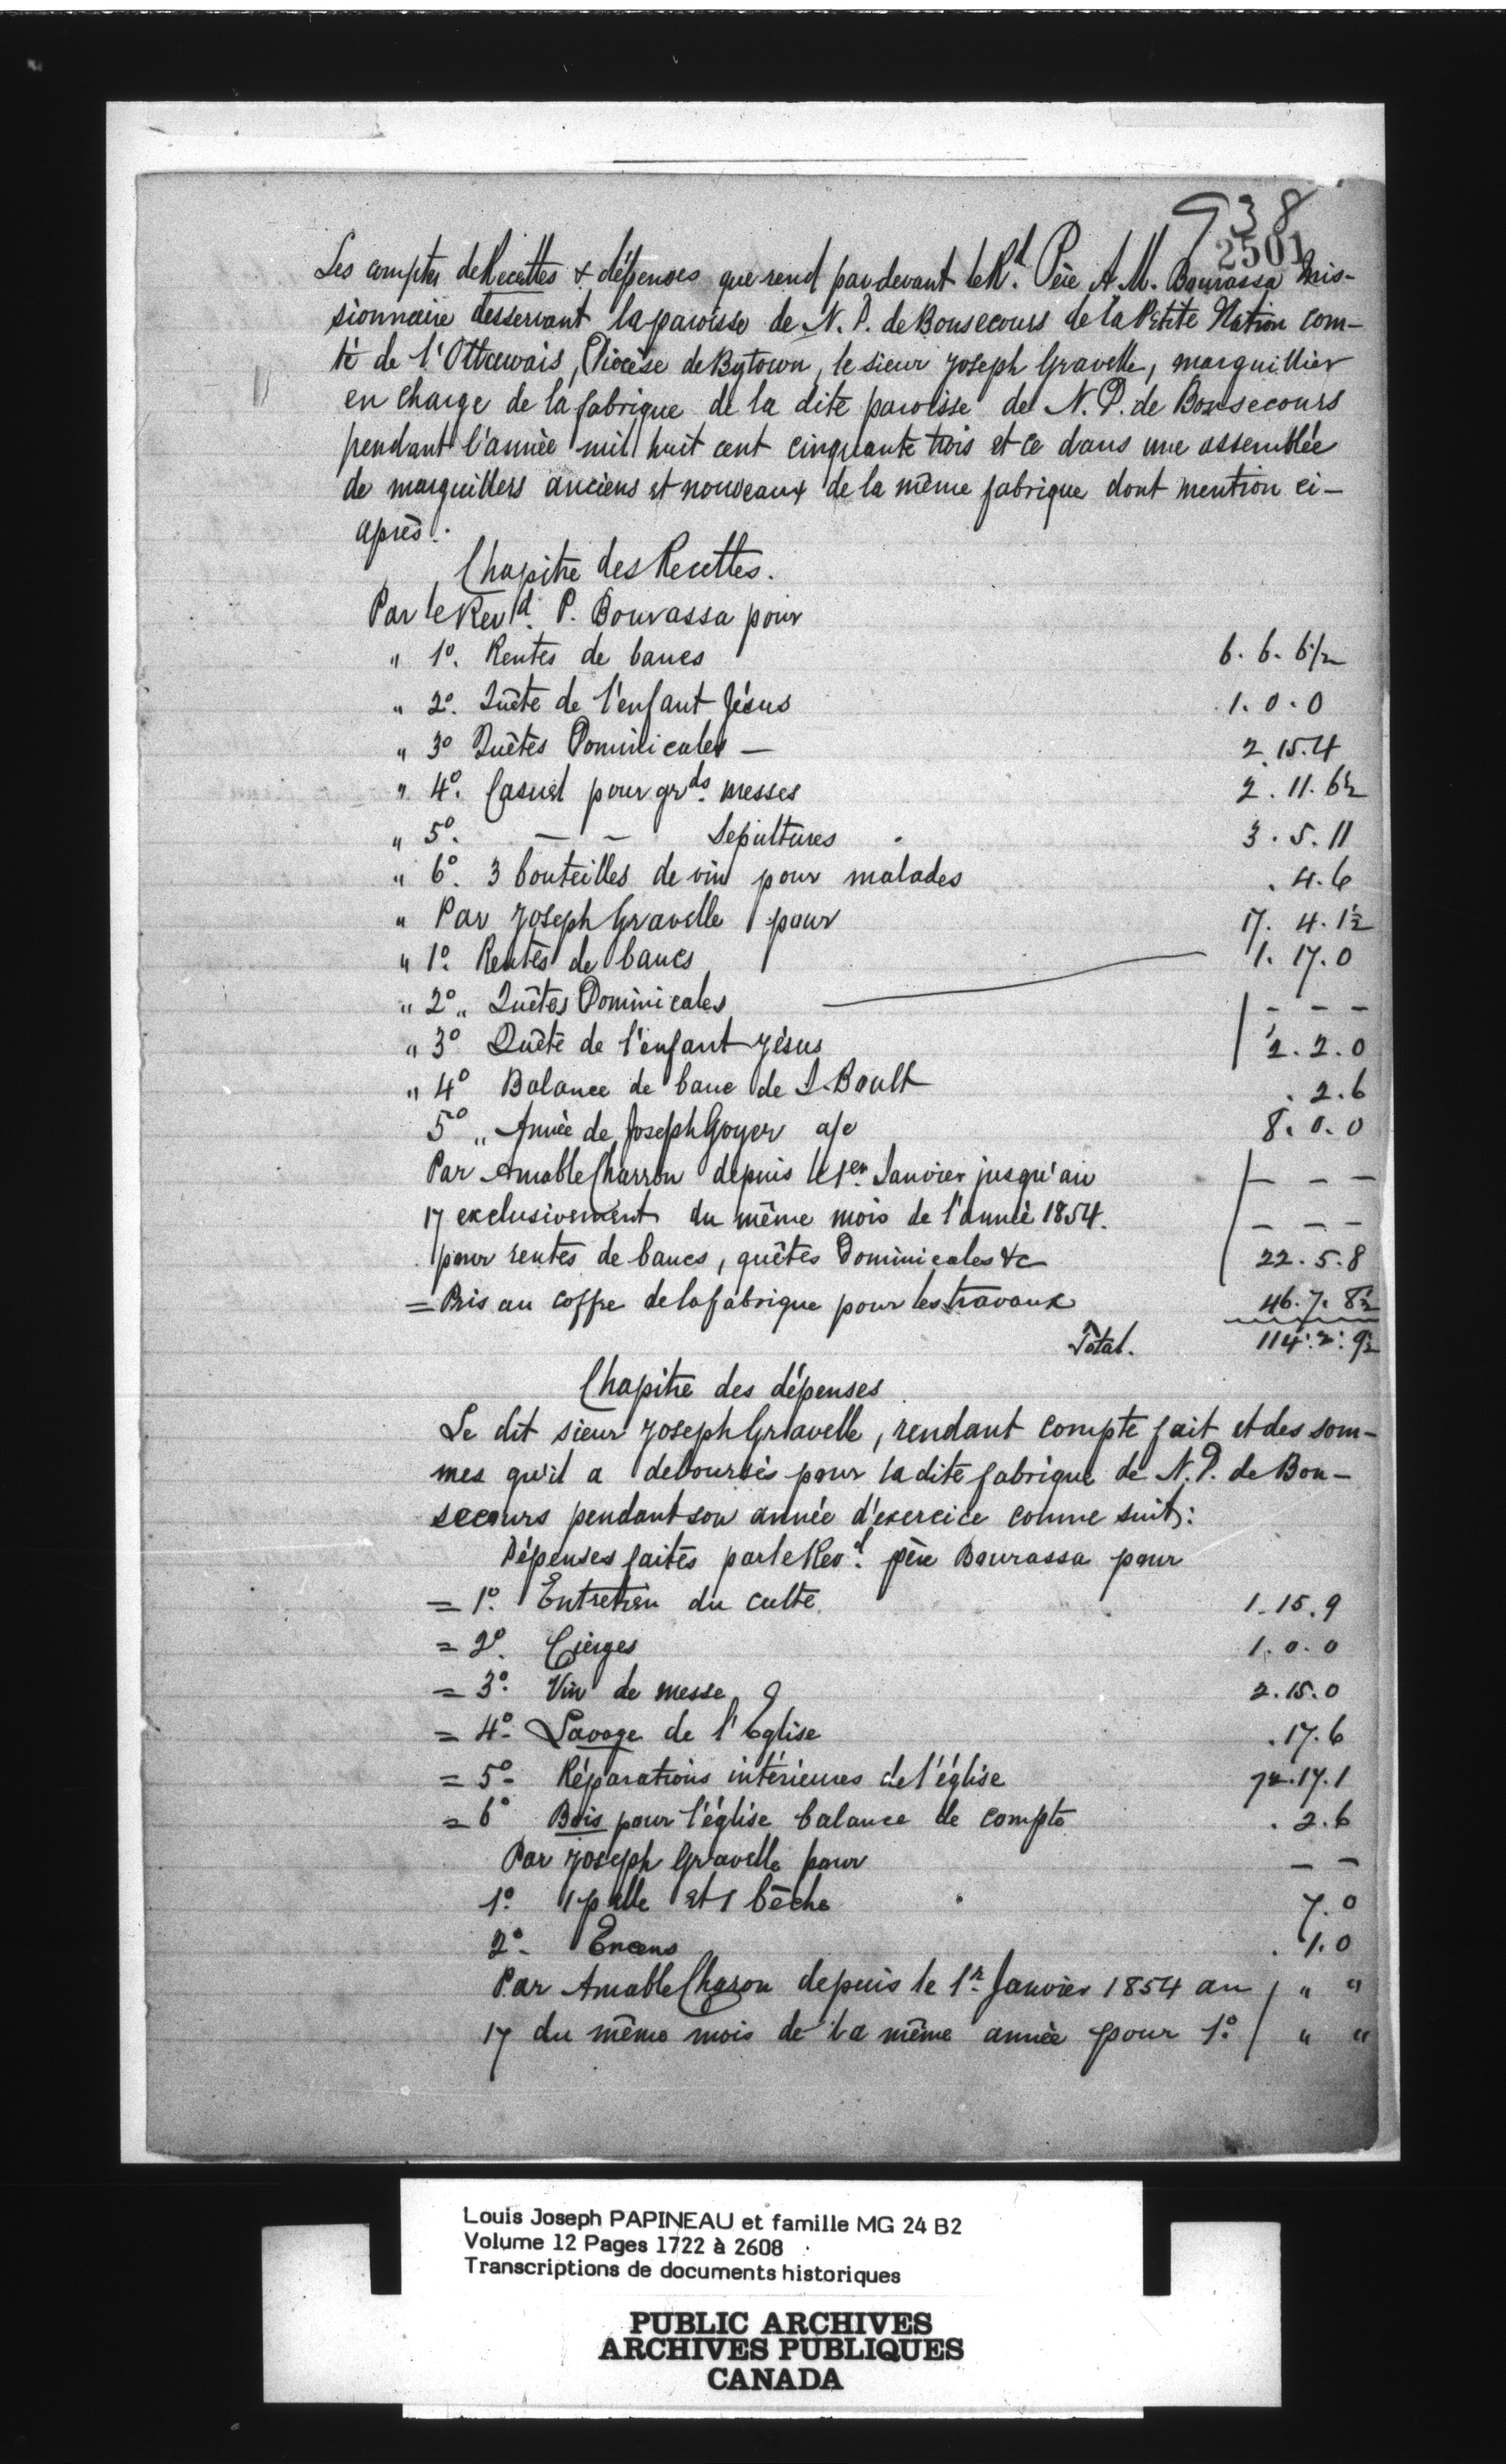 938
2501
Les comptes de Recettes & dépenses que rend par devant le R.d Père A. M. Bourassa Mis-
sionnaire desservant la paroisse de N. D. de Bonsecours de la Petite Nation com-
té de l'Ottawais, Diocèse de Bytown, le sieur Joseph Gravelle, marguillier
en charge de la fabrique de la dite paroisse de N. D. de Bonsecours
pendant l'année mil huit cent cinquante trois et ce dans une assemblée
de marguillers anciens et nouveaux de la même fabrique dont mention ci-
après.
Chapitre des Recettes.
Par le Revd. P. Bourassa pour
" 1º. Rentes de bancs 6. 6. 6 1/2
" 2º. Quête de l'enfant Jésus 1. 0. 0
" 3º Quêtes Dominicales — 2. 15. 4
" 4º. Casuel pour grds. messes 2. 11. 6 1/2
" 5º. — — Sepultures 3. 5. 11
" 6º. 3 bouteilles de vin pour malades . 4. 6
" Par Joseph Gravelle pour 17. 4. 1 1/2
" 1º. Rentes de bancs 1. 17. 0
" 2º " Quêtes Dominicales — — —
" 3º Quête de l'enfant Jésus 2. 2. 0
" 4º Balance de banc de Boult . 2. 6
5º " Année de Joseph Goyer a/c 8. 0. 0
Par Amable Charron depuis le 1er Janvier jusqu'au — — —
17 exclusivement du même mois de l'année 1854. — — —
pour rentes de bancs, quêtes Dominicales &c 22. 5. 8
= Pris au coffre de la fabrique pour les travaux 46. 7. 8 1/2
Total. 114: 2: 9 1/2
Chapitre des dépenses
Le dit sieur Joseph Gravelle, rendant compte fait et des som-
mes qu'il a deboursés pour la dite fabrique de N. D. de Bon-
secours pendant son année d'exercice comme suit:
Dépenses faites par le Revd. père Bourassa pour
= 1º. Entretien du culte. 1. 15. 9
= 2º. Cierges 1. 0. 0
= 3º. Vin de messe 2. 15. 0
= 4º- Lavage de l'Eglise . 17. 6
= 5º- Réparations intérieures de l'église 72. 17. 1
= 6º Bois pour l'église balance de compte . 2. 6
Par Joseph Gravelle pour — —
1º. 1 pelle et 1 bêche 7. 0
2º- Encens . 1. 0
Par Amable Charon depuis le 1r. Janvier 1854 au / " "
17 du même mois de la même année pour 1º. / " "
Louis Joseph PAPINEAU et famille MG 24 B2
Volume 12 Pages 1722 à 2608
Transcriptions de documents historiques
PUBLIC ARCHIVES
ARCHIVES PUBLIQUES
CANADA